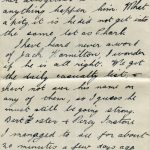 anything happen him. What
a pity it is he did not get into
the same lot as Chark
I hear have never a word
of Jack Hamilton. I wonder
if he is all right. We get
the daily casualty list, &
have not seen his name on
any of them, so I guess he
must still be going strong.
Bert & Percy
I managed to see for about
20 minutes a few days ago